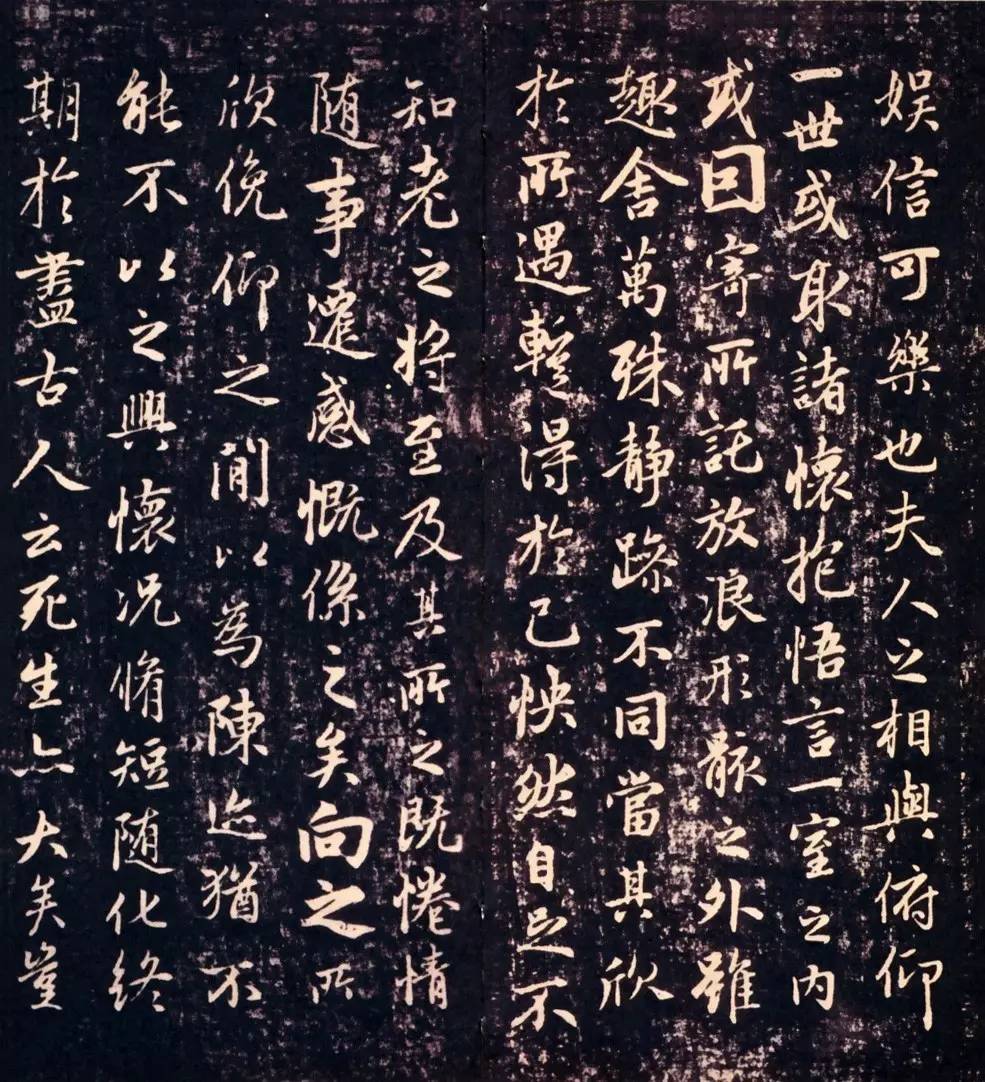 娛信可樂也夫人之相與俯仰
一世或取諸懷抱悟言一室之內
或曰寄所託放浪形骸之外雖
趣舍萬殊靜躁不同當其欣
於所遇暫得於己怏然自足不
知老之將至及其所之既惓情
隨事遷感慨係之矣向之所
欣俛仰之閒以為陳迹猶不
能不以之興懷況脩短隨化終
期於盡古人云死生亦大矣豈